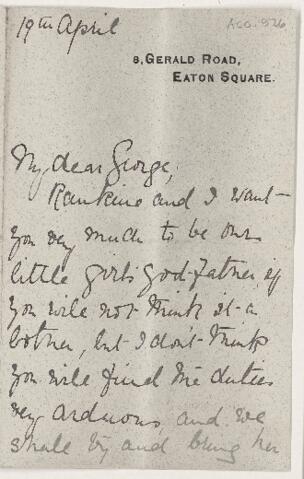 19th April
Acc. 926
8, GERALD ROAD,
EATON SQUARE.
My dear George,
Rankine and I want
you very much to be our
little girl's god-father, if
you will not think it a
bother, but I don't think
you will find the duties
very arduous, and we
shall try and bring her